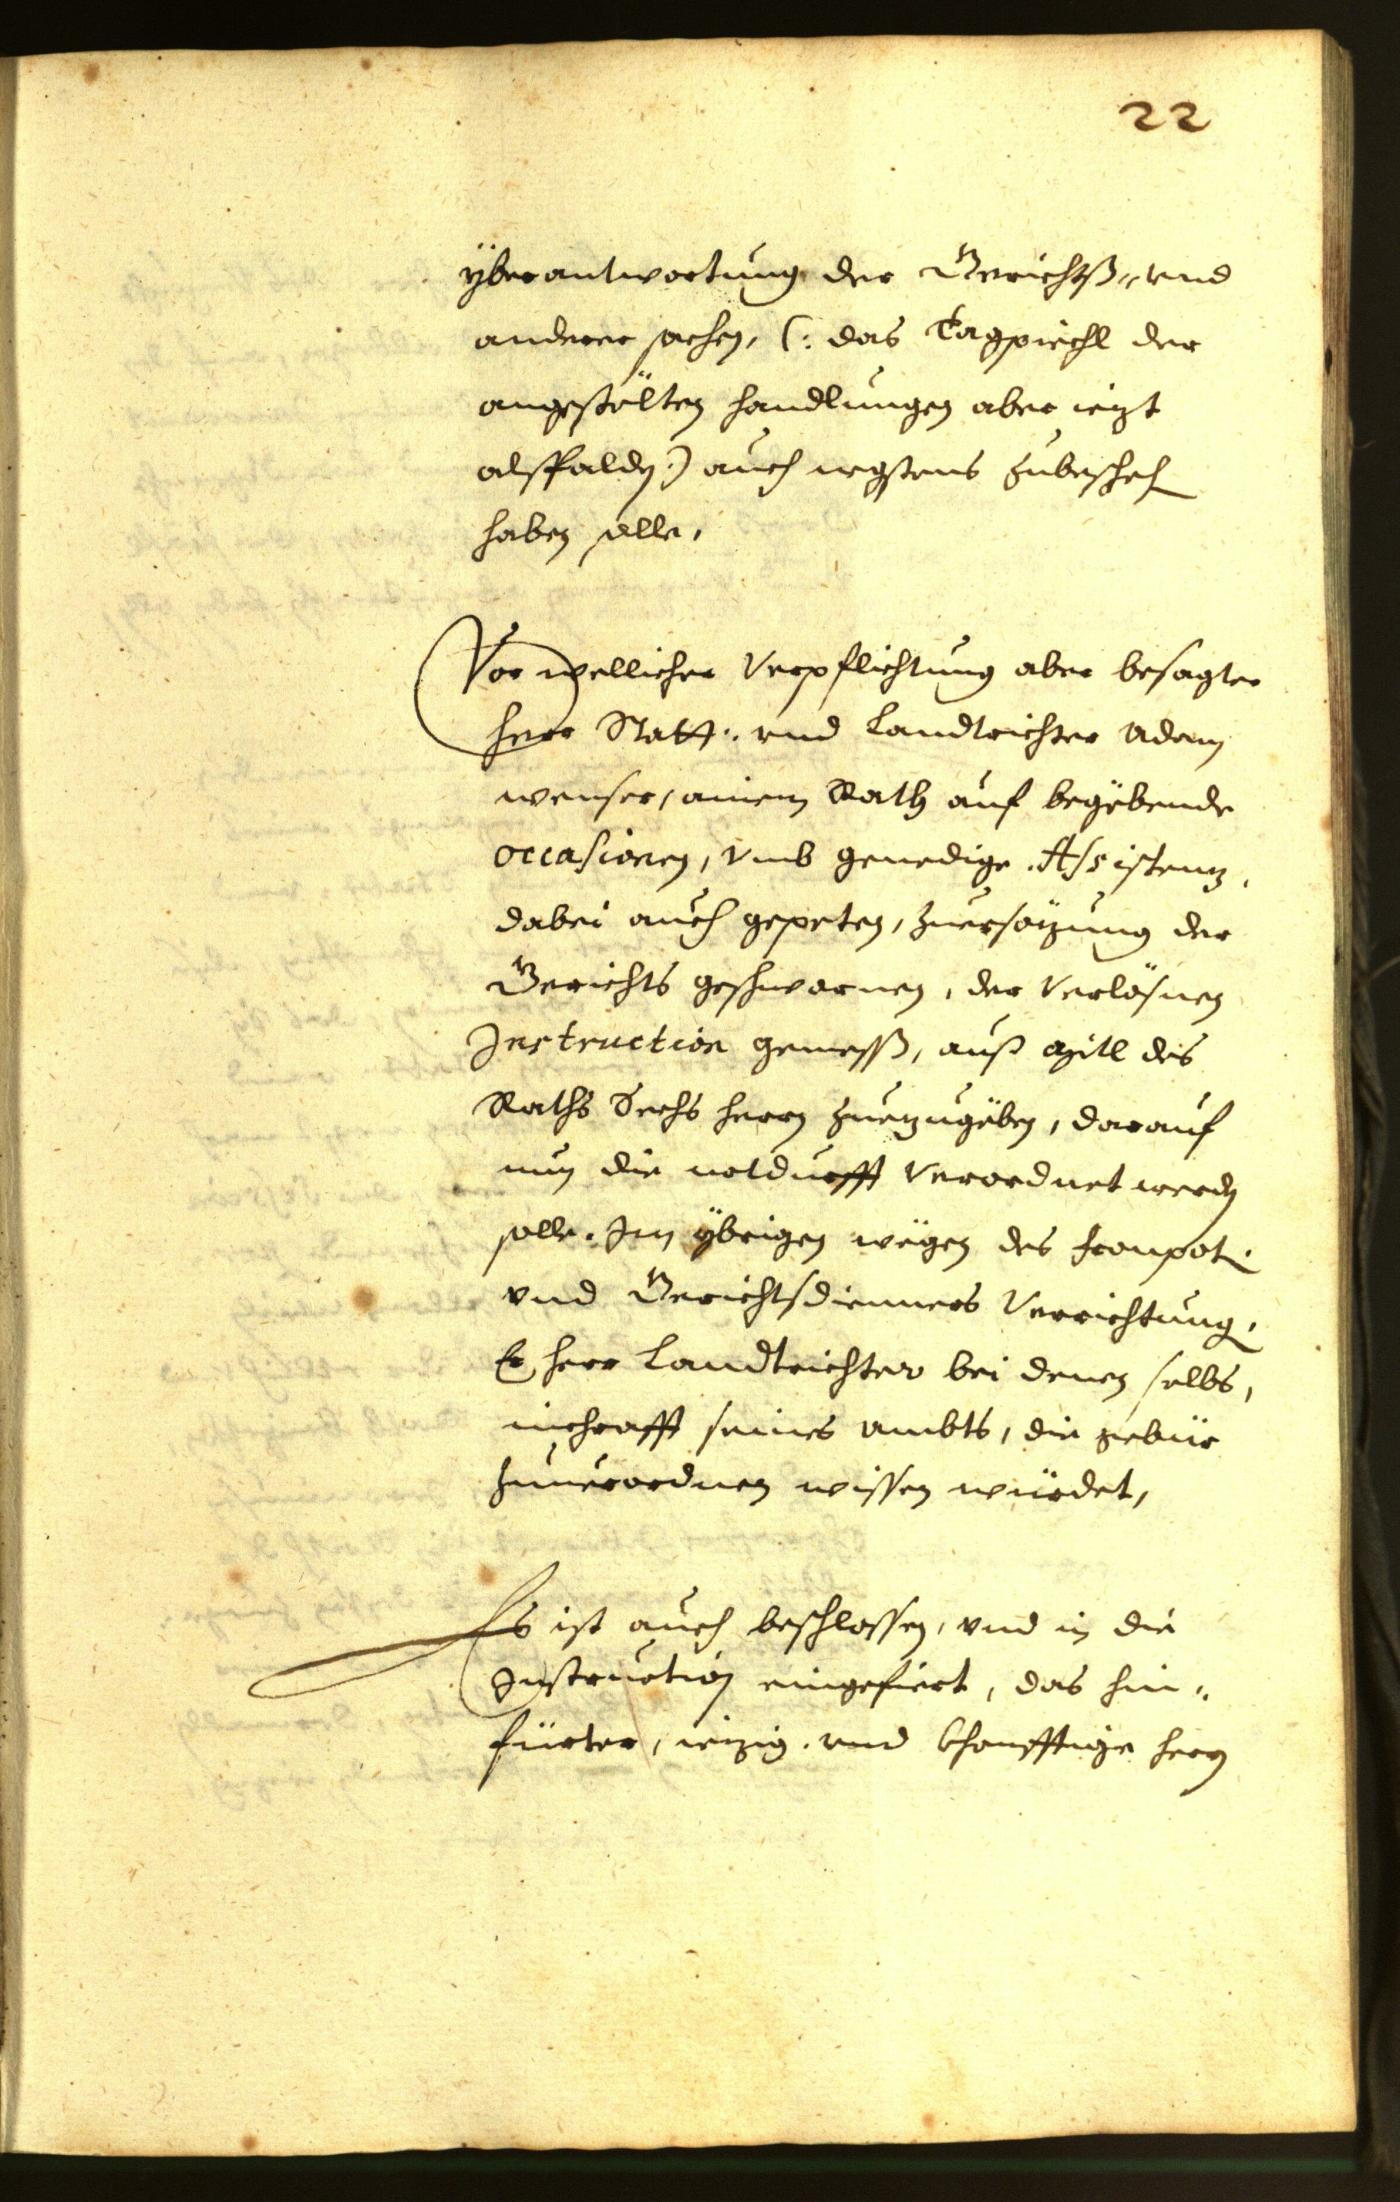 22
ÿberantwortung der Gerichtß- und
anderer sachen, (: das Tagpiechl der
angestölten handlungen aber iezt
alßpalden :) auch negstens zubeschech
haben solle,
Vor wellicher Verpflichtung aber besagter
herr Statt- und Landtrichter Adam
wenser, ainem Rath auf begëbende
occasionen, umb genedige Assistenz,
dabei auch gepeten, zuersözung der
Gerichts geschwornen, der Verlösnen
Instruction gemeß, auß mitl des
Raths Sechs herrn zuezugëben, darauf
nun die notdurfft Verordnet werden
solle. Im ÿbrigen wëgen des fronpot-
und Gerichtsdienners Verrichtung,
Er herr Landtrichter bei denen selbs,
inchrafft seines ambts, die gebür
zuuerordnen wissen würdet,
Es ist auch beschlossen, und in die
Instruction eingefiert, das hin-
fürter, iezig- und khonfftige herrn